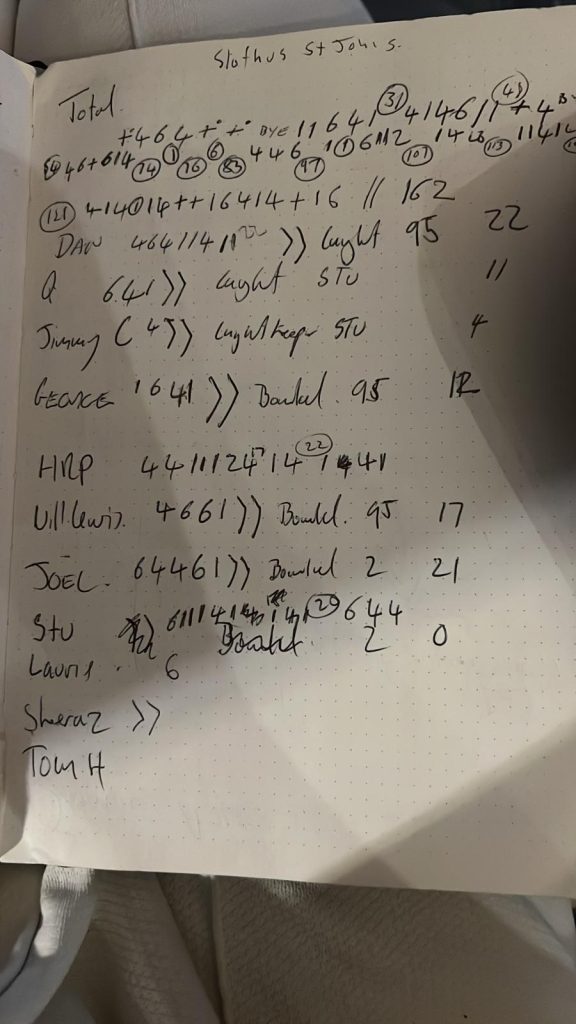 Slothus St Johns.
Total.
+ 4 6 4 + · + · BYE 1 1 6 4 1 (31) 4 1 4 6 1 1 (48) + 4 BY
4 6 + 6 1 4 (74) (76) 6 (83) 4 4 6 (97) 1 1 6 1 1 2 (107) 1 4 (113) 1 1 4 1 4
(121) 4 1 4 1 4 + + 1 6 4 1 4 + 1 6 // 162
DAN 4 6 4 1 1 4 1 1 22 >> Caught 95 22
Q 6 4 1 >> Caught STU 11
Jimmy C 4 >> Caught Keeper STU 4
GEORGE 1 6 4 1 >> Bowled. 95 12
HRP 4 4 1 1 1 2 4 17 1 4 (22) 1 4 1
Will Lewis. 4 6 6 1 >> Bowled. 95 17
JOEL. 6 4 4 6 1 >> Bowled 2 21
Stu 6 1 1 1 4 1 4 1 4 1 (29) 6 4 4
Bowled. 2 0
Lauris. 6
Sheeraz >>
Tom H